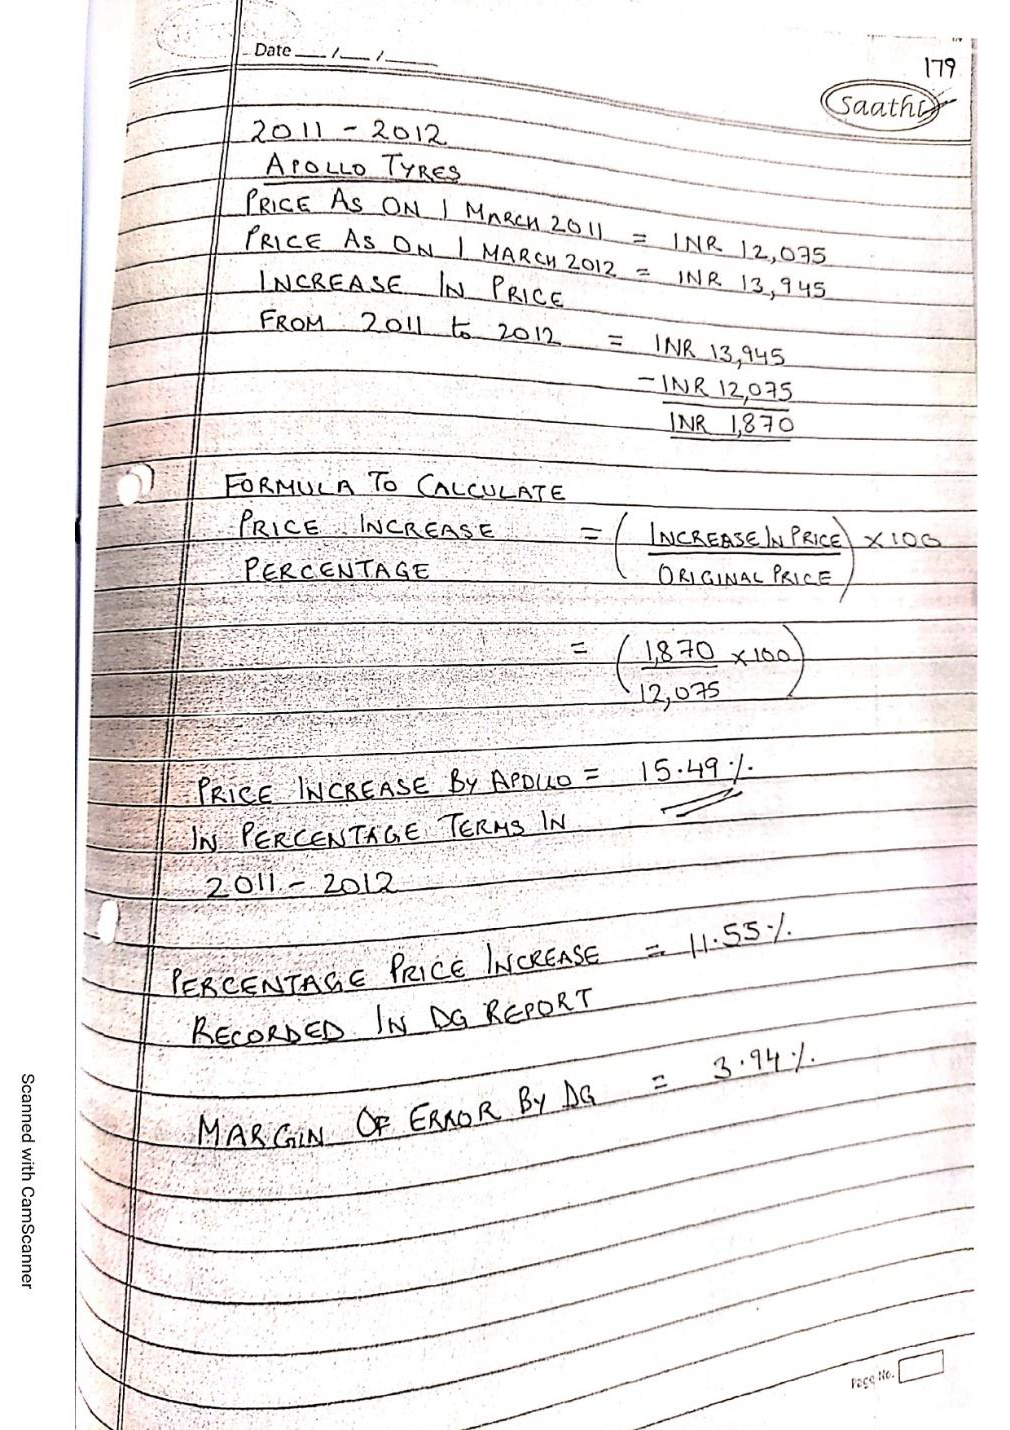 Date __/__/____
179
Saathi
2011 - 2012
APOLLO TYRES
PRICE AS ON 1 MARCH 2011 = INR 12,075
PRICE AS ON 1 MARCH 2012 = INR 13,945
INCREASE IN PRICE
FROM 2011 to 2012 = INR 13,945
- INR 12,075
INR 1,870
FORMULA TO CALCULATE
PRICE INCREASE = (INCREASE IN PRICE) X 100
PERCENTAGE ORIGINAL PRICE
= (1,870 x 100)
12,075
PRICE INCREASE BY APOLLO = 15.49 %.
IN PERCENTAGE TERMS IN
2011 - 2012
PERCENTAGE PRICE INCREASE = 11.55 %.
RECORDED IN DG REPORT
MARGIN OF ERROR BY DG = 3.94 %.
Page No.
Scanned with CamScanner